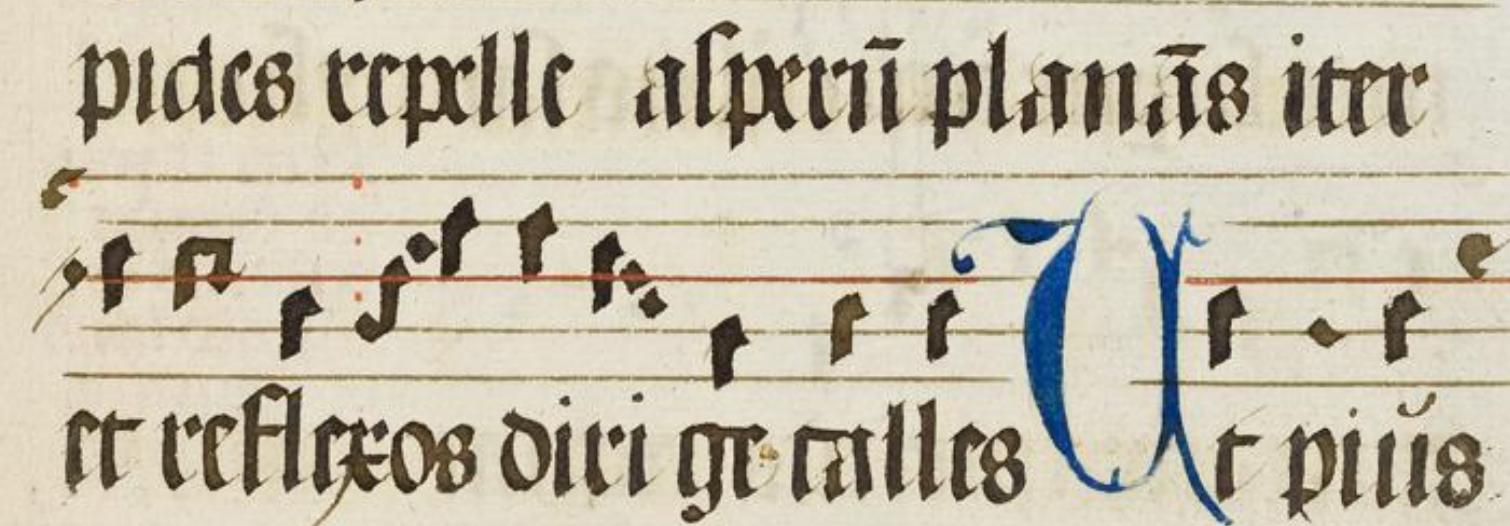 pides repelle asperū planās iter
et reflexos diri ge calles Ut pius